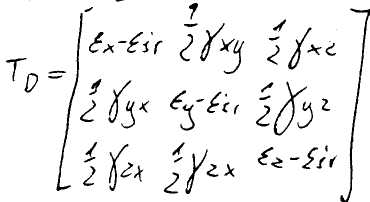 T_D = [ εx-εsr  1/2 γxy  1/2 γxz
1/2 γyx  εy-εsr  1/2 γyz
1/2 γzx  1/2 γzx  εz-εsr ]